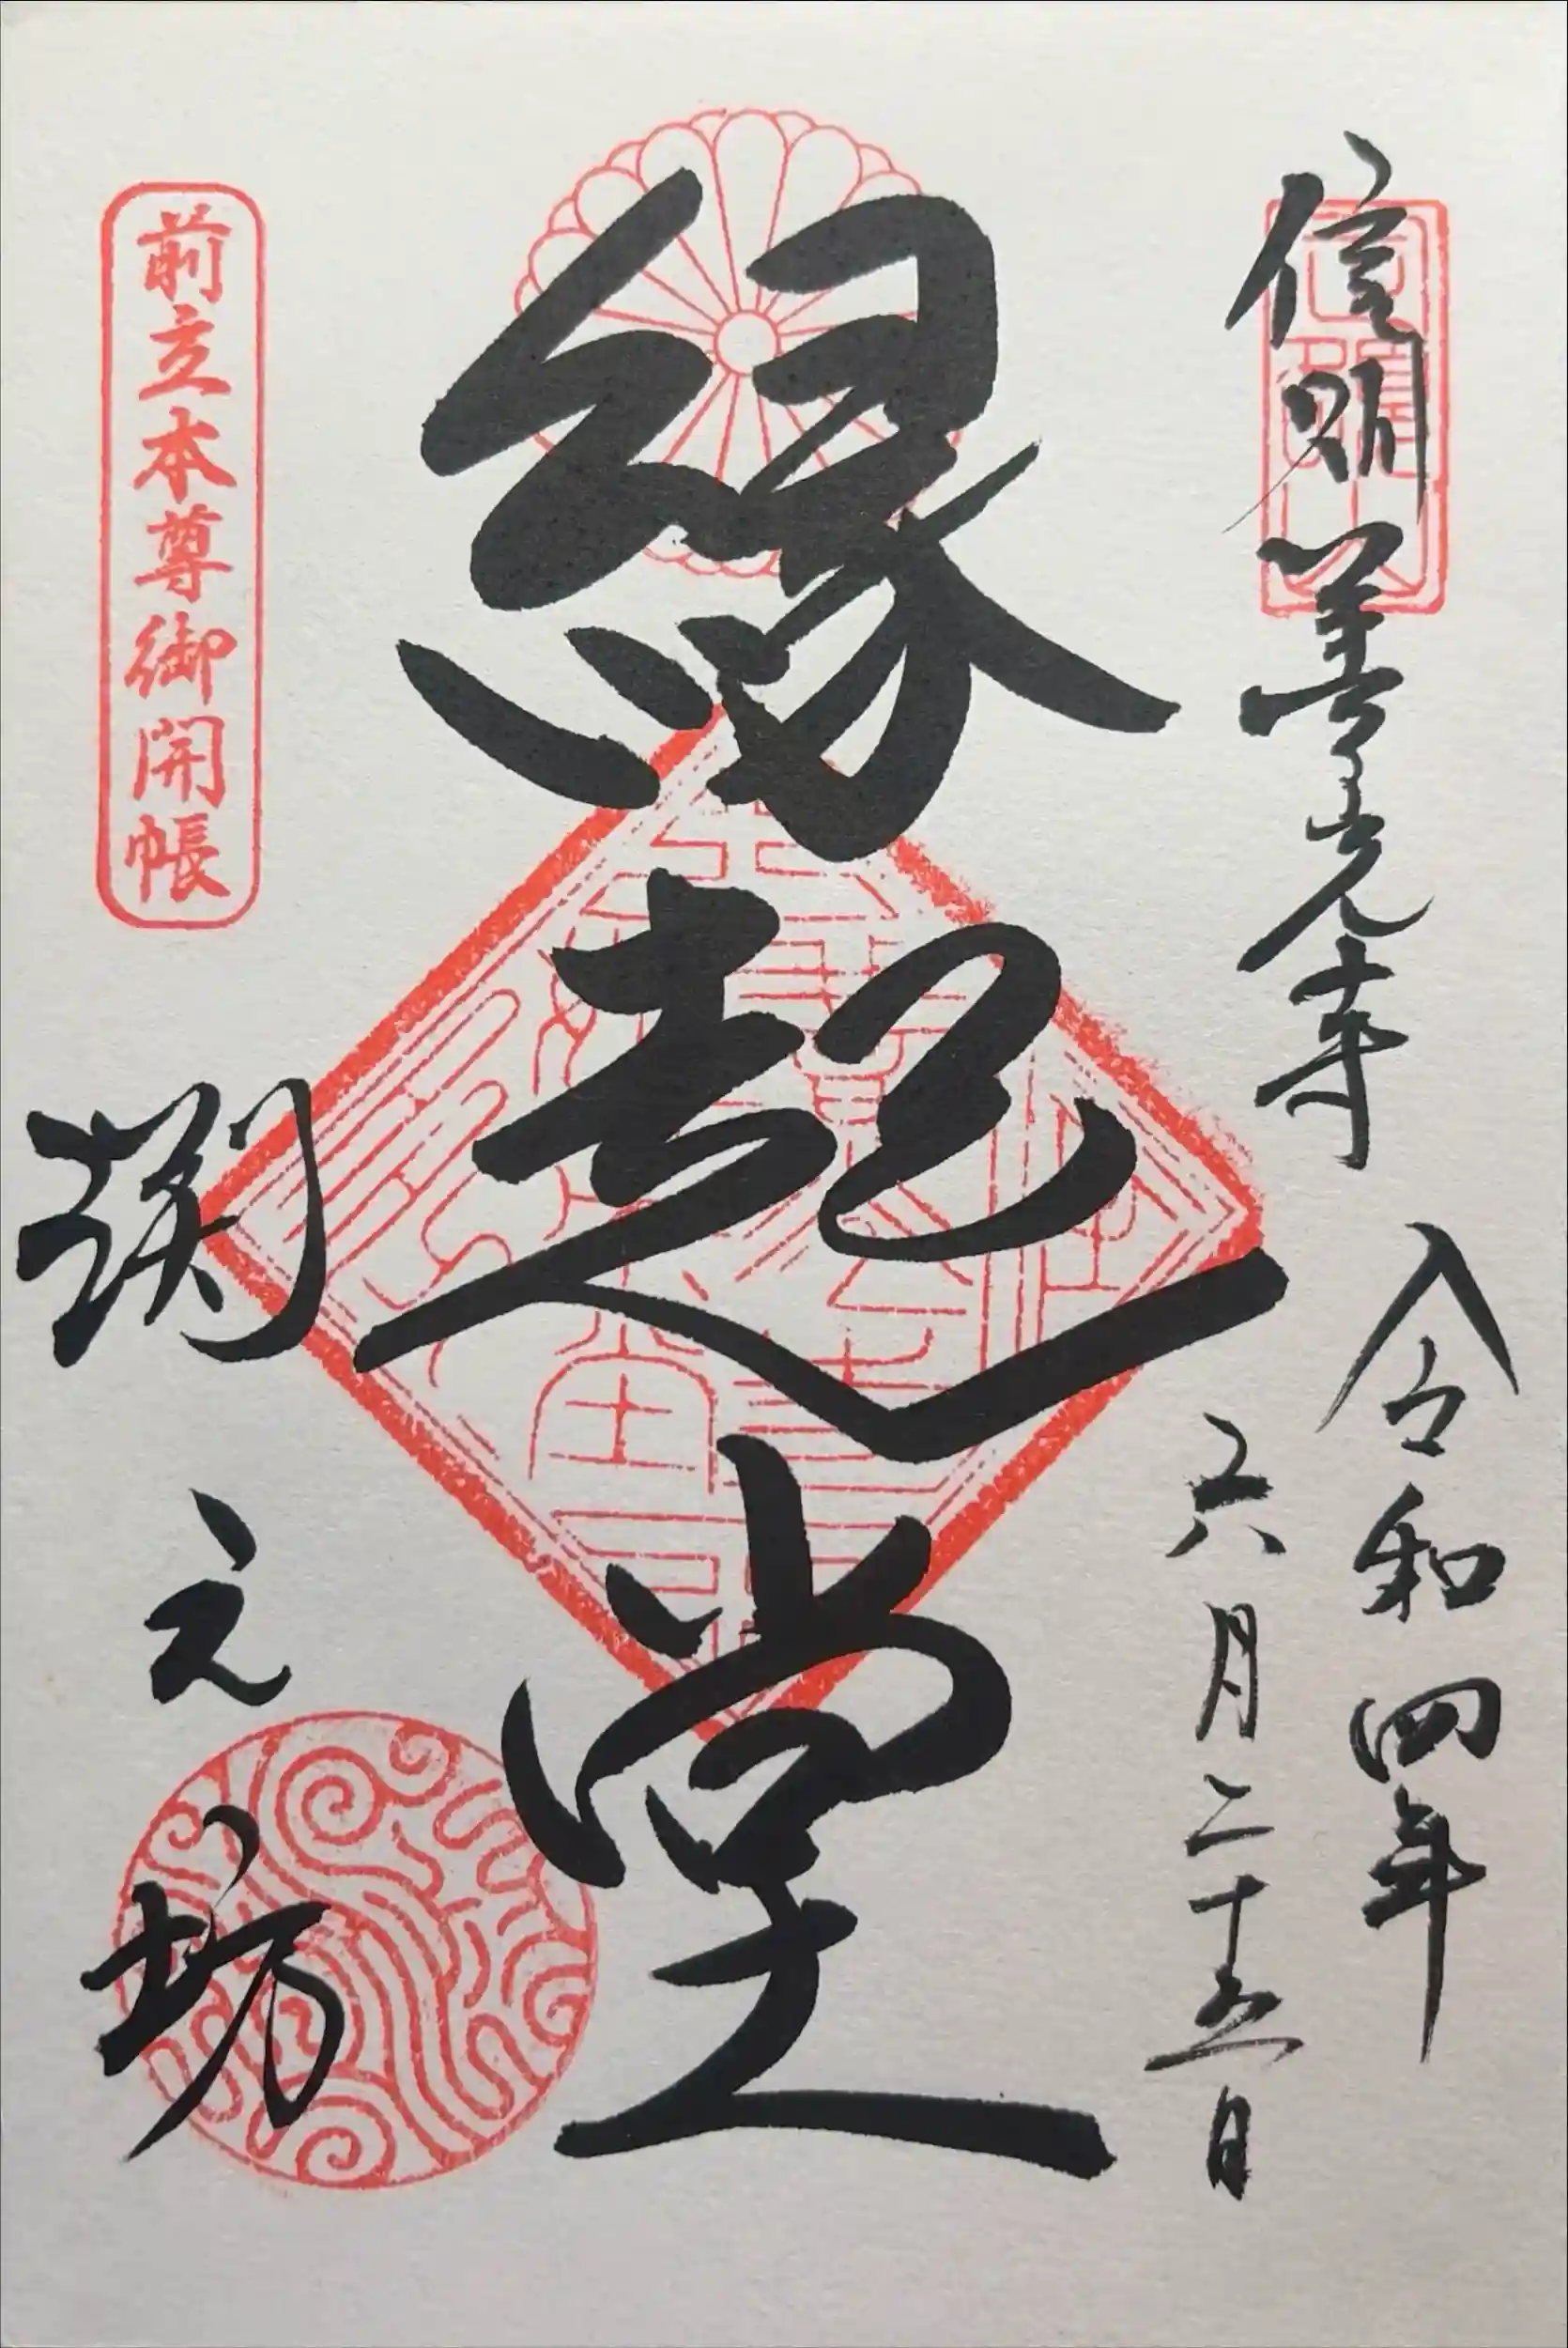 定額山
信州善光寺
令和四年
六月二十五日
縁起堂
前立本尊御開帳
渕之坊